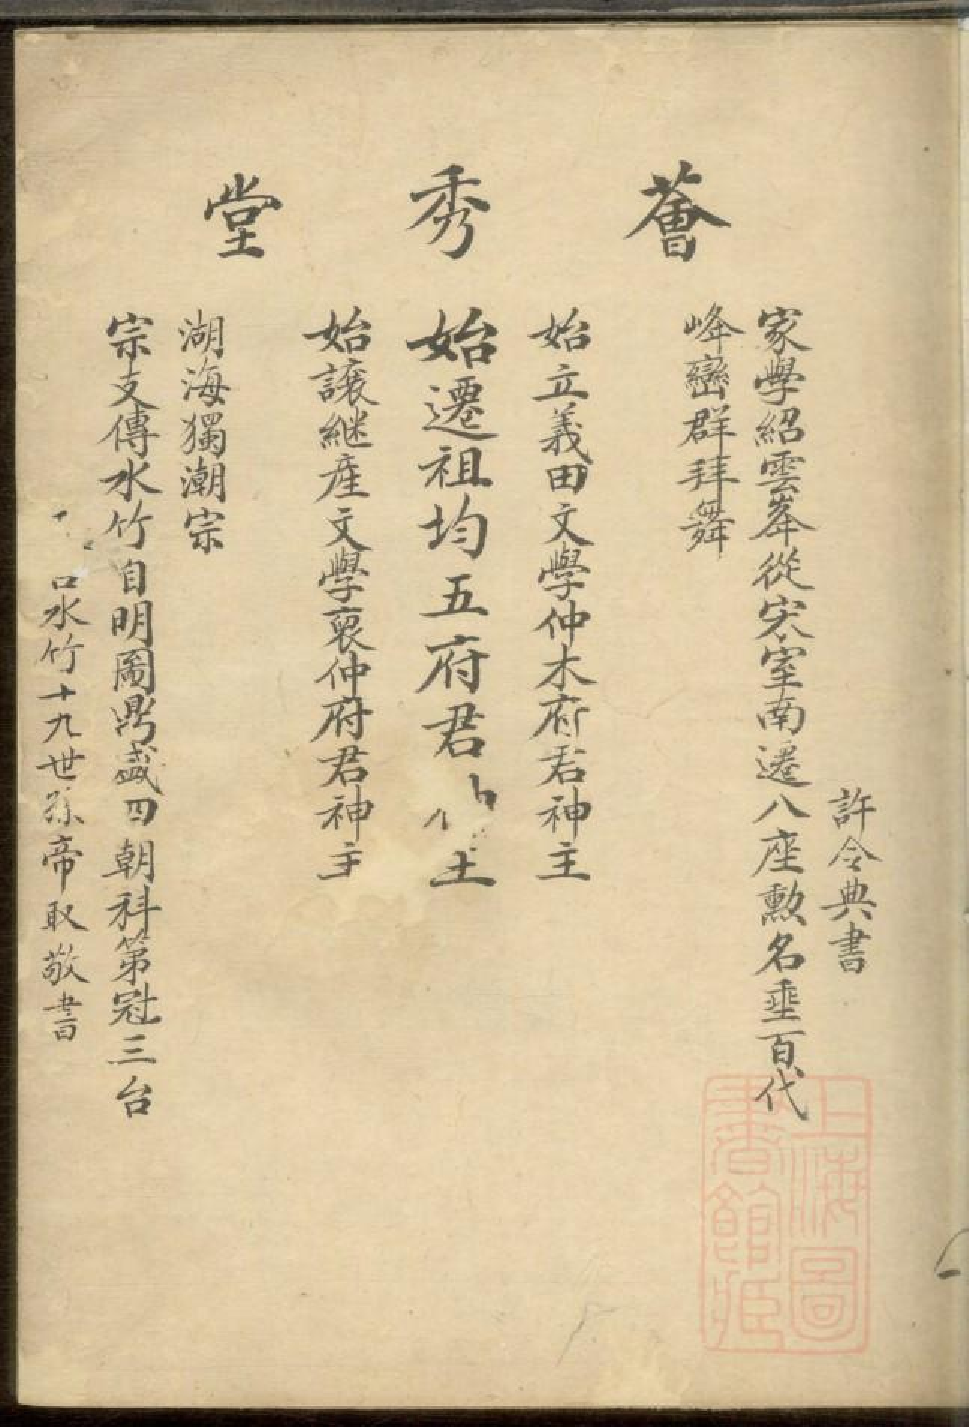 薈秀堂
許令典書
家學紹雲峯從宋室南遷八座勲名垂百代
峰巒群拜舞
始立義田文學仲木府君神主
始遷祖均五府君主
始讓継產文學裒仲府君神主
湖海獨潮宗
宗支傳水竹自明圖鼎盛四朝科第冠三台
水竹十九世孫帝臤敬書
上海圖書館藏